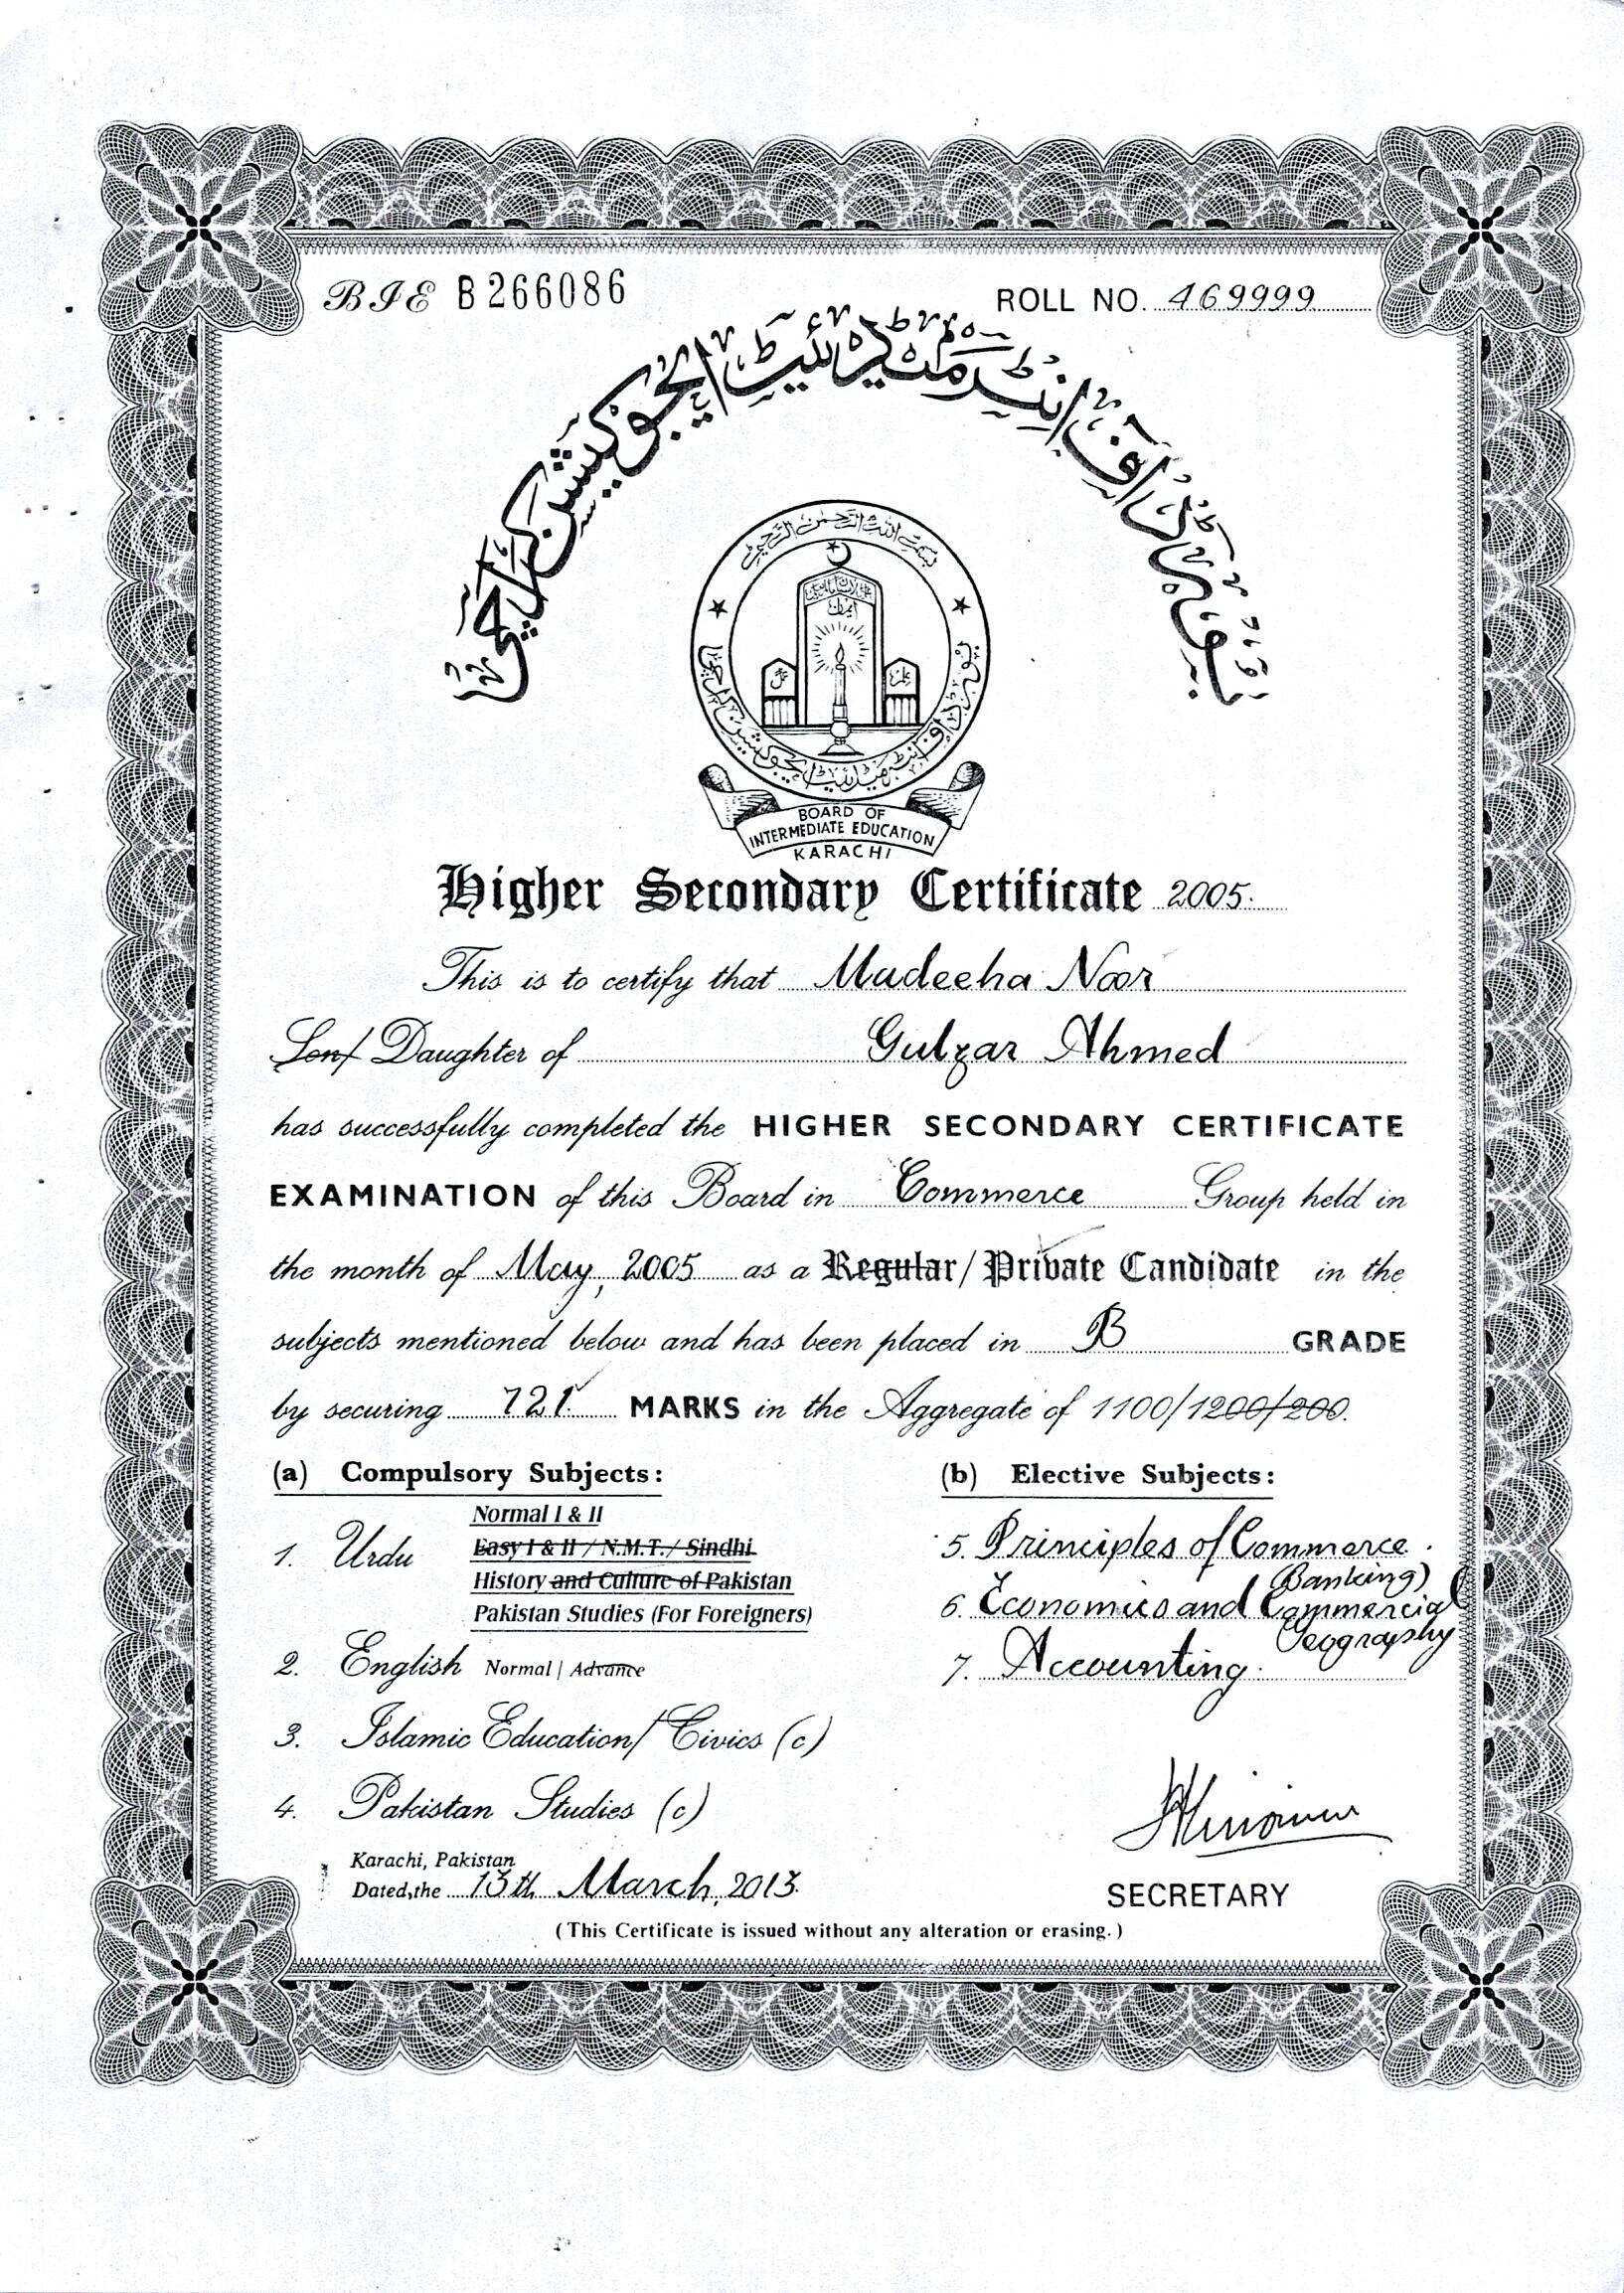 BIE B 266086
ROLL NO. 469999
بورڈ آف انٹرمیڈیئیٹ ایجوکیشن کراچی
بسم اللہ الرحمن الرحیم
بورڈ آف انٹرمیڈیئیٹ ایجوکیشن کراچی
BOARD OF
INTERMEDIATE EDUCATION
KARACHI
Higher Secondary Certificate 2005.
This is to certify that Madeeha Noor
Son/ Daughter of Gulzar Ahmed
has successfully completed the HIGHER SECONDARY CERTIFICATE
EXAMINATION of this Board in Commerce Group held in
the month of May, 2005 as a Regular/Private Candidate in the
subjects mentioned below and has been placed in B GRADE
by securing 721 MARKS in the Aggregate of 1100/1200/200.
(a) Compulsory Subjects:
Normal I & II
1. Urdu Easy I & II / N.M.T. / Sindhi
History and Culture of Pakistan
Pakistan Studies (For Foreigners)
2. English Normal | Advance
3. Islamic Education/ Civics (c)
4. Pakistan Studies (c)
(b) Elective Subjects:
5. Principles of Commerce
(Banking)
6. Economics and Commercial
Geography
7. Accounting.
Karachi, Pakistan
Dated, the 13th March, 2013.
SECRETARY
(This Certificate is issued without any alteration or erasing.)